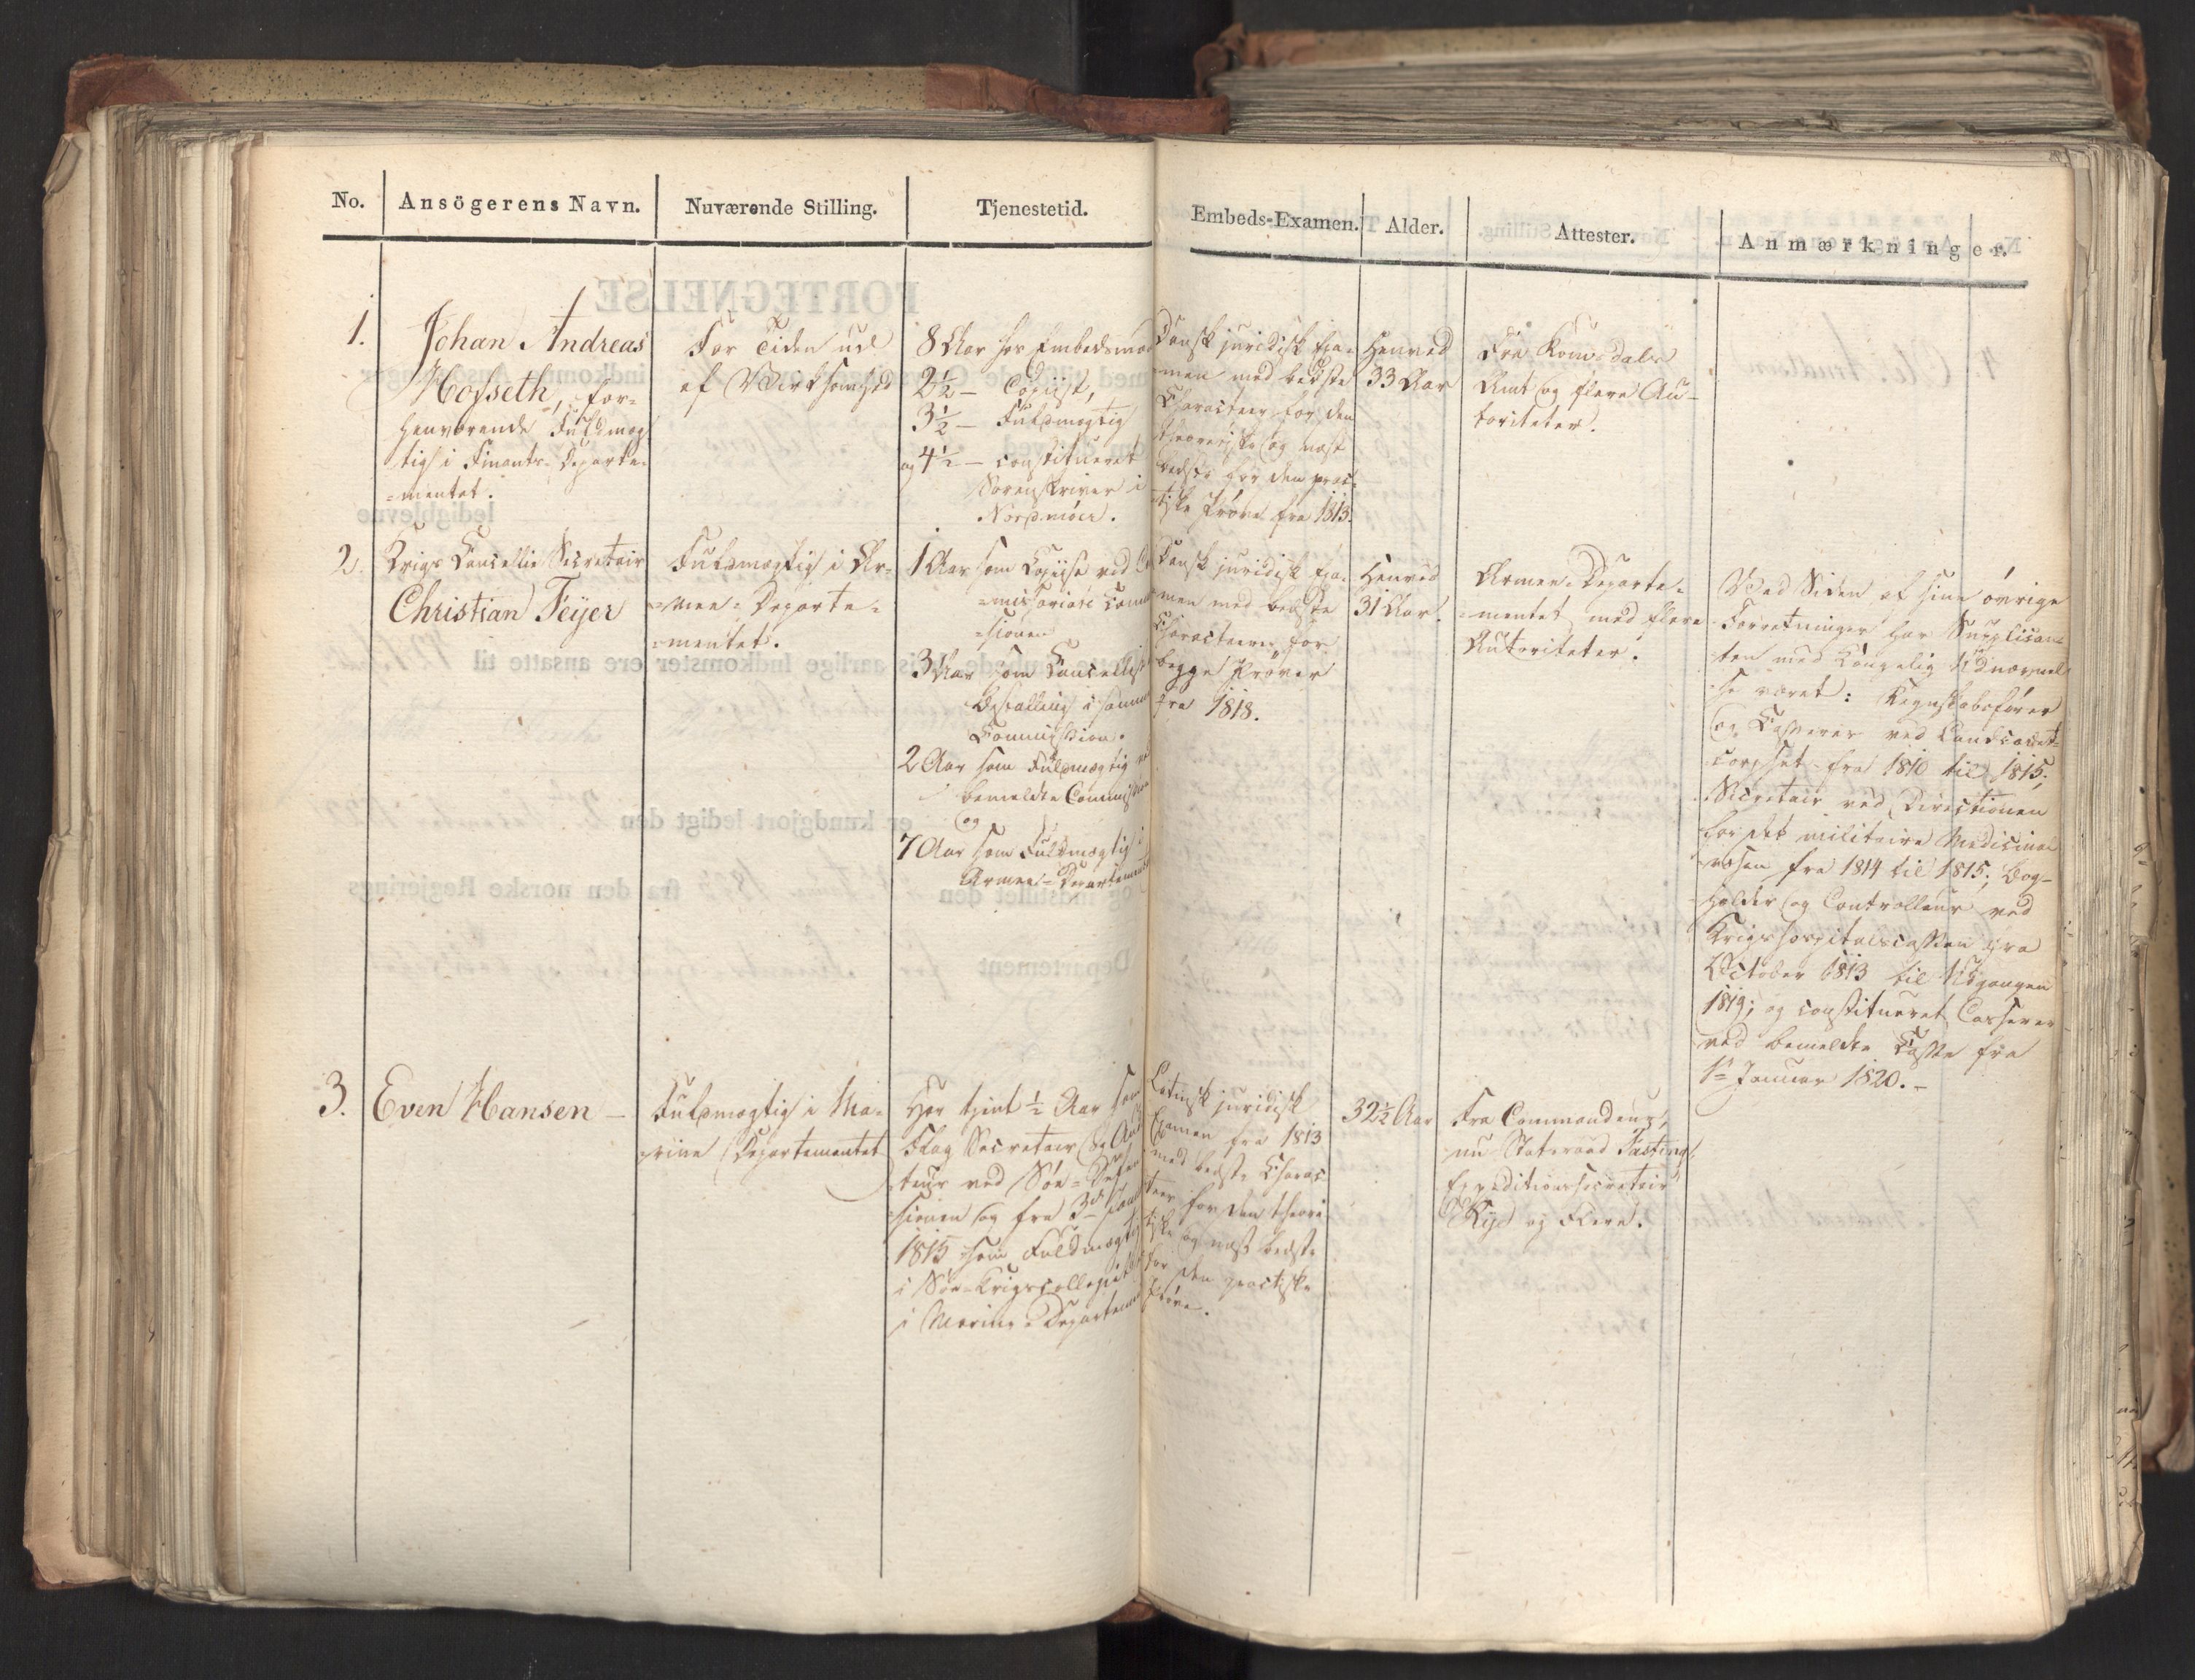 No.
Ansögerens Navn.
Nuværende Stilling.
Tjenestetid.
Embeds-Examen.
Alder.
Attester.
Anmærkninger.
1.
Johan Andreas
Mosseth, for-
henværende Fuldmæg-
tig i Finants-Departe-
=mentet.
For Tiden ud
af Virksomhed
8 Aar hos Embedsmæ
2½ — Copiist,
3½ — Fuldmægtig
og 4½ — constitueret
Sorenskriver i
Nordmöer.
Dansk juridisk Exa-
men med bedste
Characteer for den
theoretiske og næst
bedste for den prac-
tiske Pröve fra 1813.
Henved
33 Aar
Fra Romsdals
Amt og flere Au-
toriteter.
2.
Krigs Cancellie Secretair
Christian Feyer
Fuldmægtig i Ar-
=mee=Departe-
=mentet.
1 Aar som Copiist ved
=missariats Comm
=sionen
3 Aar som Cancellist
Bestalling i samme
Commission.
2 Aar som Fuldmægtig
bemeldte Commission
og
7 Aar som Fuldmægtig i
Armee=Departement
Dansk juridisk Exa-
men med bedste
Characteer for
begge Pröver
fra 1818.
Henved
31 Aar.
Armee=Departe-
=mentet med flere
Autoriteter.
Ved Siden af sine övrige
Forretninger har Supplican-
ten med Kongelig Udnævnel-
se været: Regnskabsförer
og Casserer ved Landcadet-
corpset fra 1810 til 1815;
Secretair ved Directionen
for det militaire Medicinal
væsen fra 1814 til 1815; Bog-
holder og Controlleur ved
Krigshospitalscassen fra
October 1813 til Udgangen
1819; og constitueret Casserer
ved bemeldte Casse fra
1ste Januar 1820.—
3.
Even Hansen —
Fuldmægtig i Ma-
=rine Departementet
Har tjent ½ Aar som
Flag Secretair og Audi
teur ved Söe=Defen
sionen og fra 3die
1815 som Fuldmægtig
i Söe=Krigscollegiet
i Marine=Departem
Latinsk juridisk
Examen fra 1813
med bedste Charac-
teer for den theore
tiske og næst bedste
for den practiske
Pröve.
32½ Aar
Fra Commandeur,
nu Statsraad Fasting,
Expeditionssecretair
Rye og Flere.